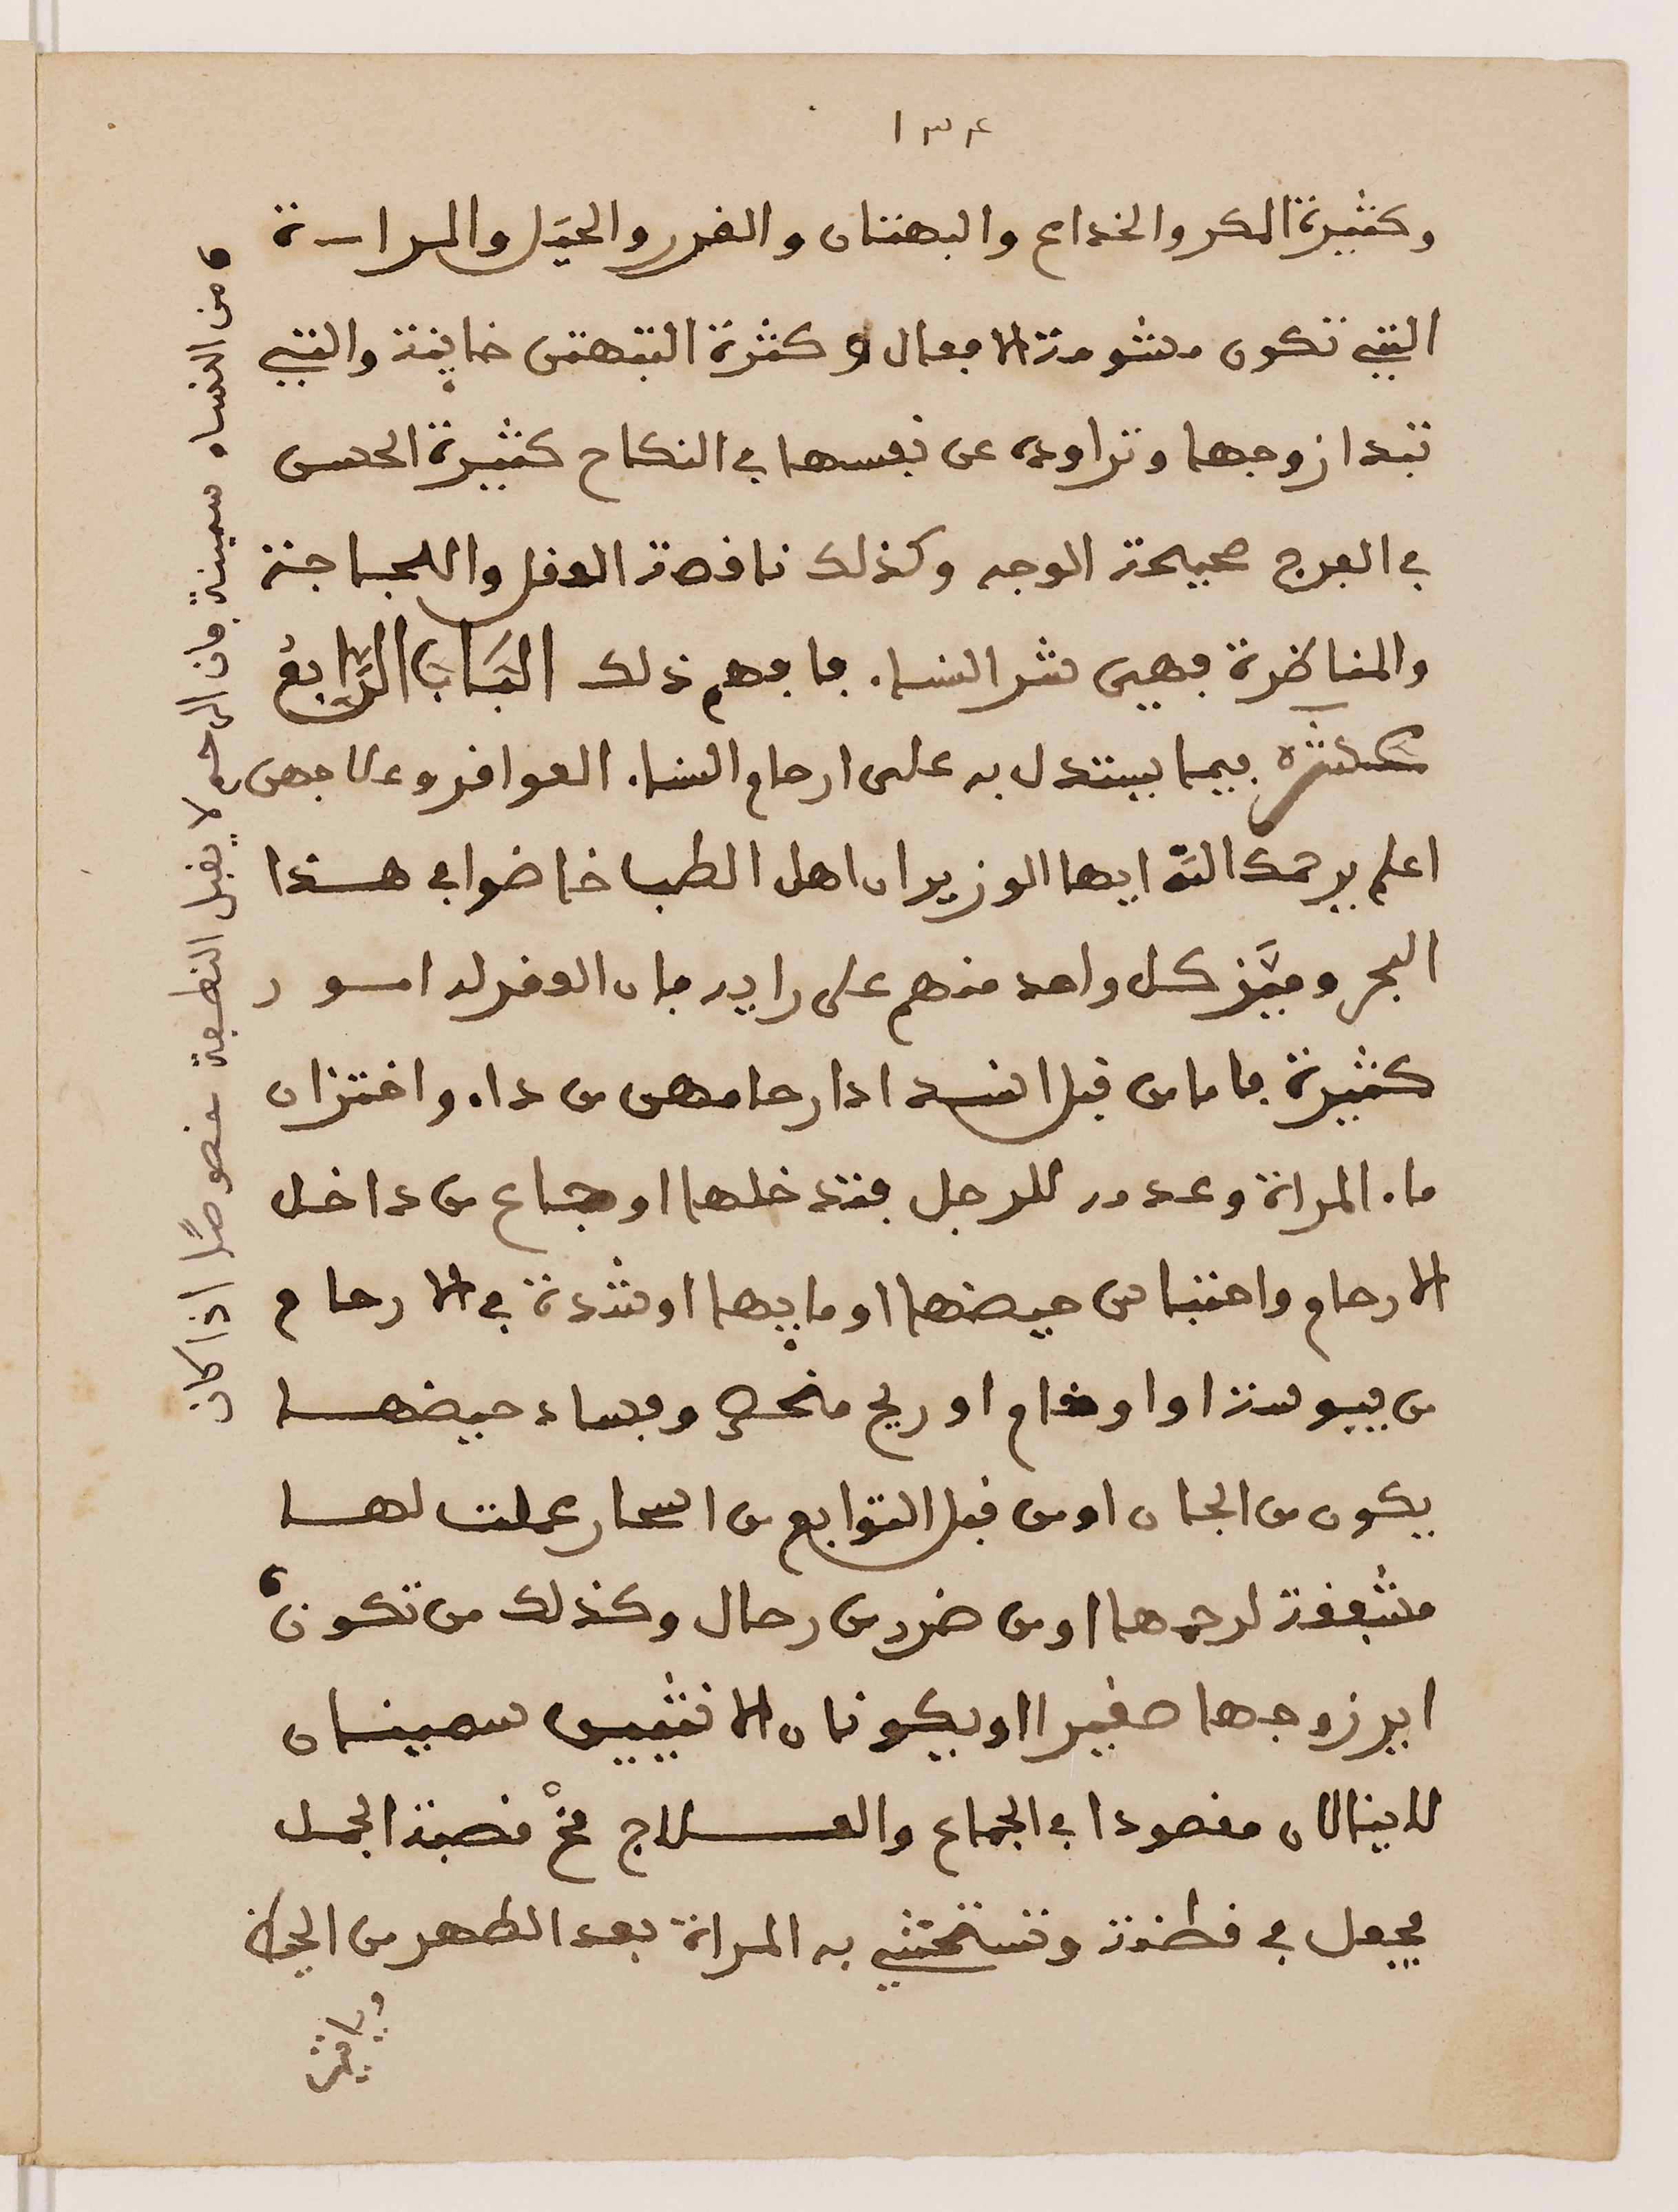 ١٣٤
وكثيرة المكر والخداع والبهتان والغرر والحيَل والمراة
التي تكون مشومة الافعال وكثرة التبهتس خاينة والتي
تبدا زوجها وتراوده عن نفسها في النكاح كثيرة الحسن
في الفرج صحيحة الوجه وكذلك ناقصة العقل واللجاجة
والمناظرة فهي شر النساء فافهم ذلك البَاب الرَّابع
عشر فيما يستدل به على ارحام النساء العواقر وعلاجهن
اعلم يرحمك اللّه ايها الوزير ان اهل الطب خاضوا في هذا
البحر وميَّز كل واحد منهم على رايه فان العقر له امور
كثيرة فاما من قبل انسداد ارحامهن من داء واختزان
ماء المراة وعدمه للرجل فتدخلها اوجاع من داخل
الارحام واحتباس حيضها او مايها او شدة في الارحام
من يبوسة او اوخام او ريح وفساد حيضها
يكون من الجان او من قبل التوابع من اسحار عملت لها
مشققة لرحمها او من ضرر من رحال وكذلك من تكون
اير زوجها صغيرا او يكونان الانثيين سمينان
لا ينالان مقصودا في الجماع والعلاج مخْ قصبة الجمل
يجعل في قطنة وتستحتشي به المراة بعد الطهر من الحيض
من النساء سمينة فان الرحم لا يقبل النطفة خصوصًا اذا كان